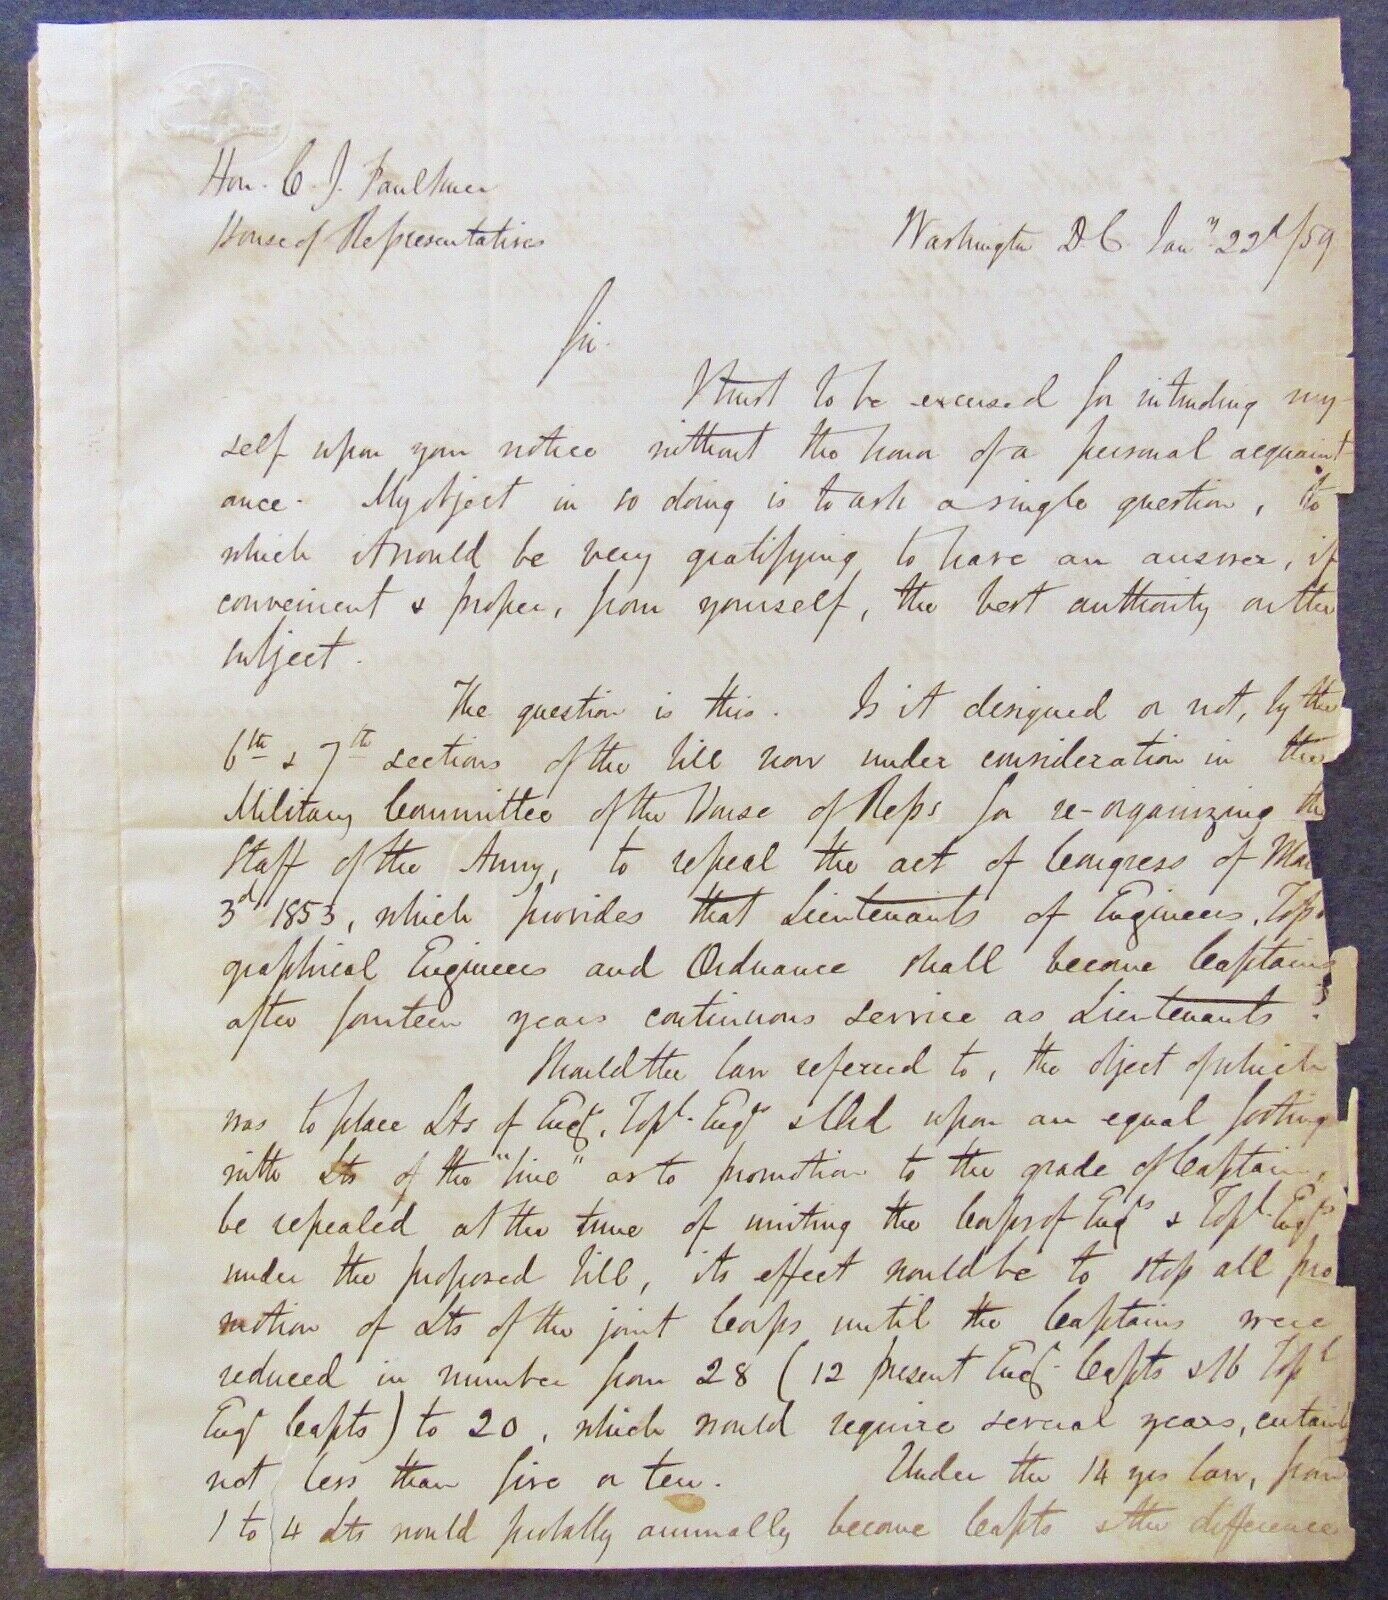 Hon. C. J. Faulkner
House of Representatives
Washington D.C. Jany. 22d /59
Sir.
I trust to be excused for intruding my-
self upon your notice without the honor of a personal acquaint-
ance. My object in so doing is to ask a single question, to
which it would be very gratifying to have an answer, if
convenient & proper, from yourself, the best authority on the
subject.
The question is this. Is it designed or not, by the
6th & 7th sections of the bill now under consideration in the
Military Committee of the House of Reps for re-organizing the
Staff of the Army, to repeal the act of Congress of Mar
3d 1853, which provides that Lieutenants of Engineers, Topo-
graphical Engineers and Ordnance shall become Captains
after fourteen years continuous service as Lieutenants?
Should the law referred to, the object of which
was to place Lts of Engs, Topl. Engs & Ord upon an equal footing
with Lts of the "line" as to promotion to the grade of Captain,
be repealed at the time of uniting the Corps of Engs & Topl. Engs
under the proposed bill, its effect would be to stop all pro
motion of Lts of the joint Corps until the Captains were
reduced in number from 28 (12 present Eng. Capts & 16 Topl
Eng Capts) to 20, which would require several years, certainly
not less than five or ten. Under the 14 yrs law, from
1 to 4 Lts would probably annually become Capts & the difference